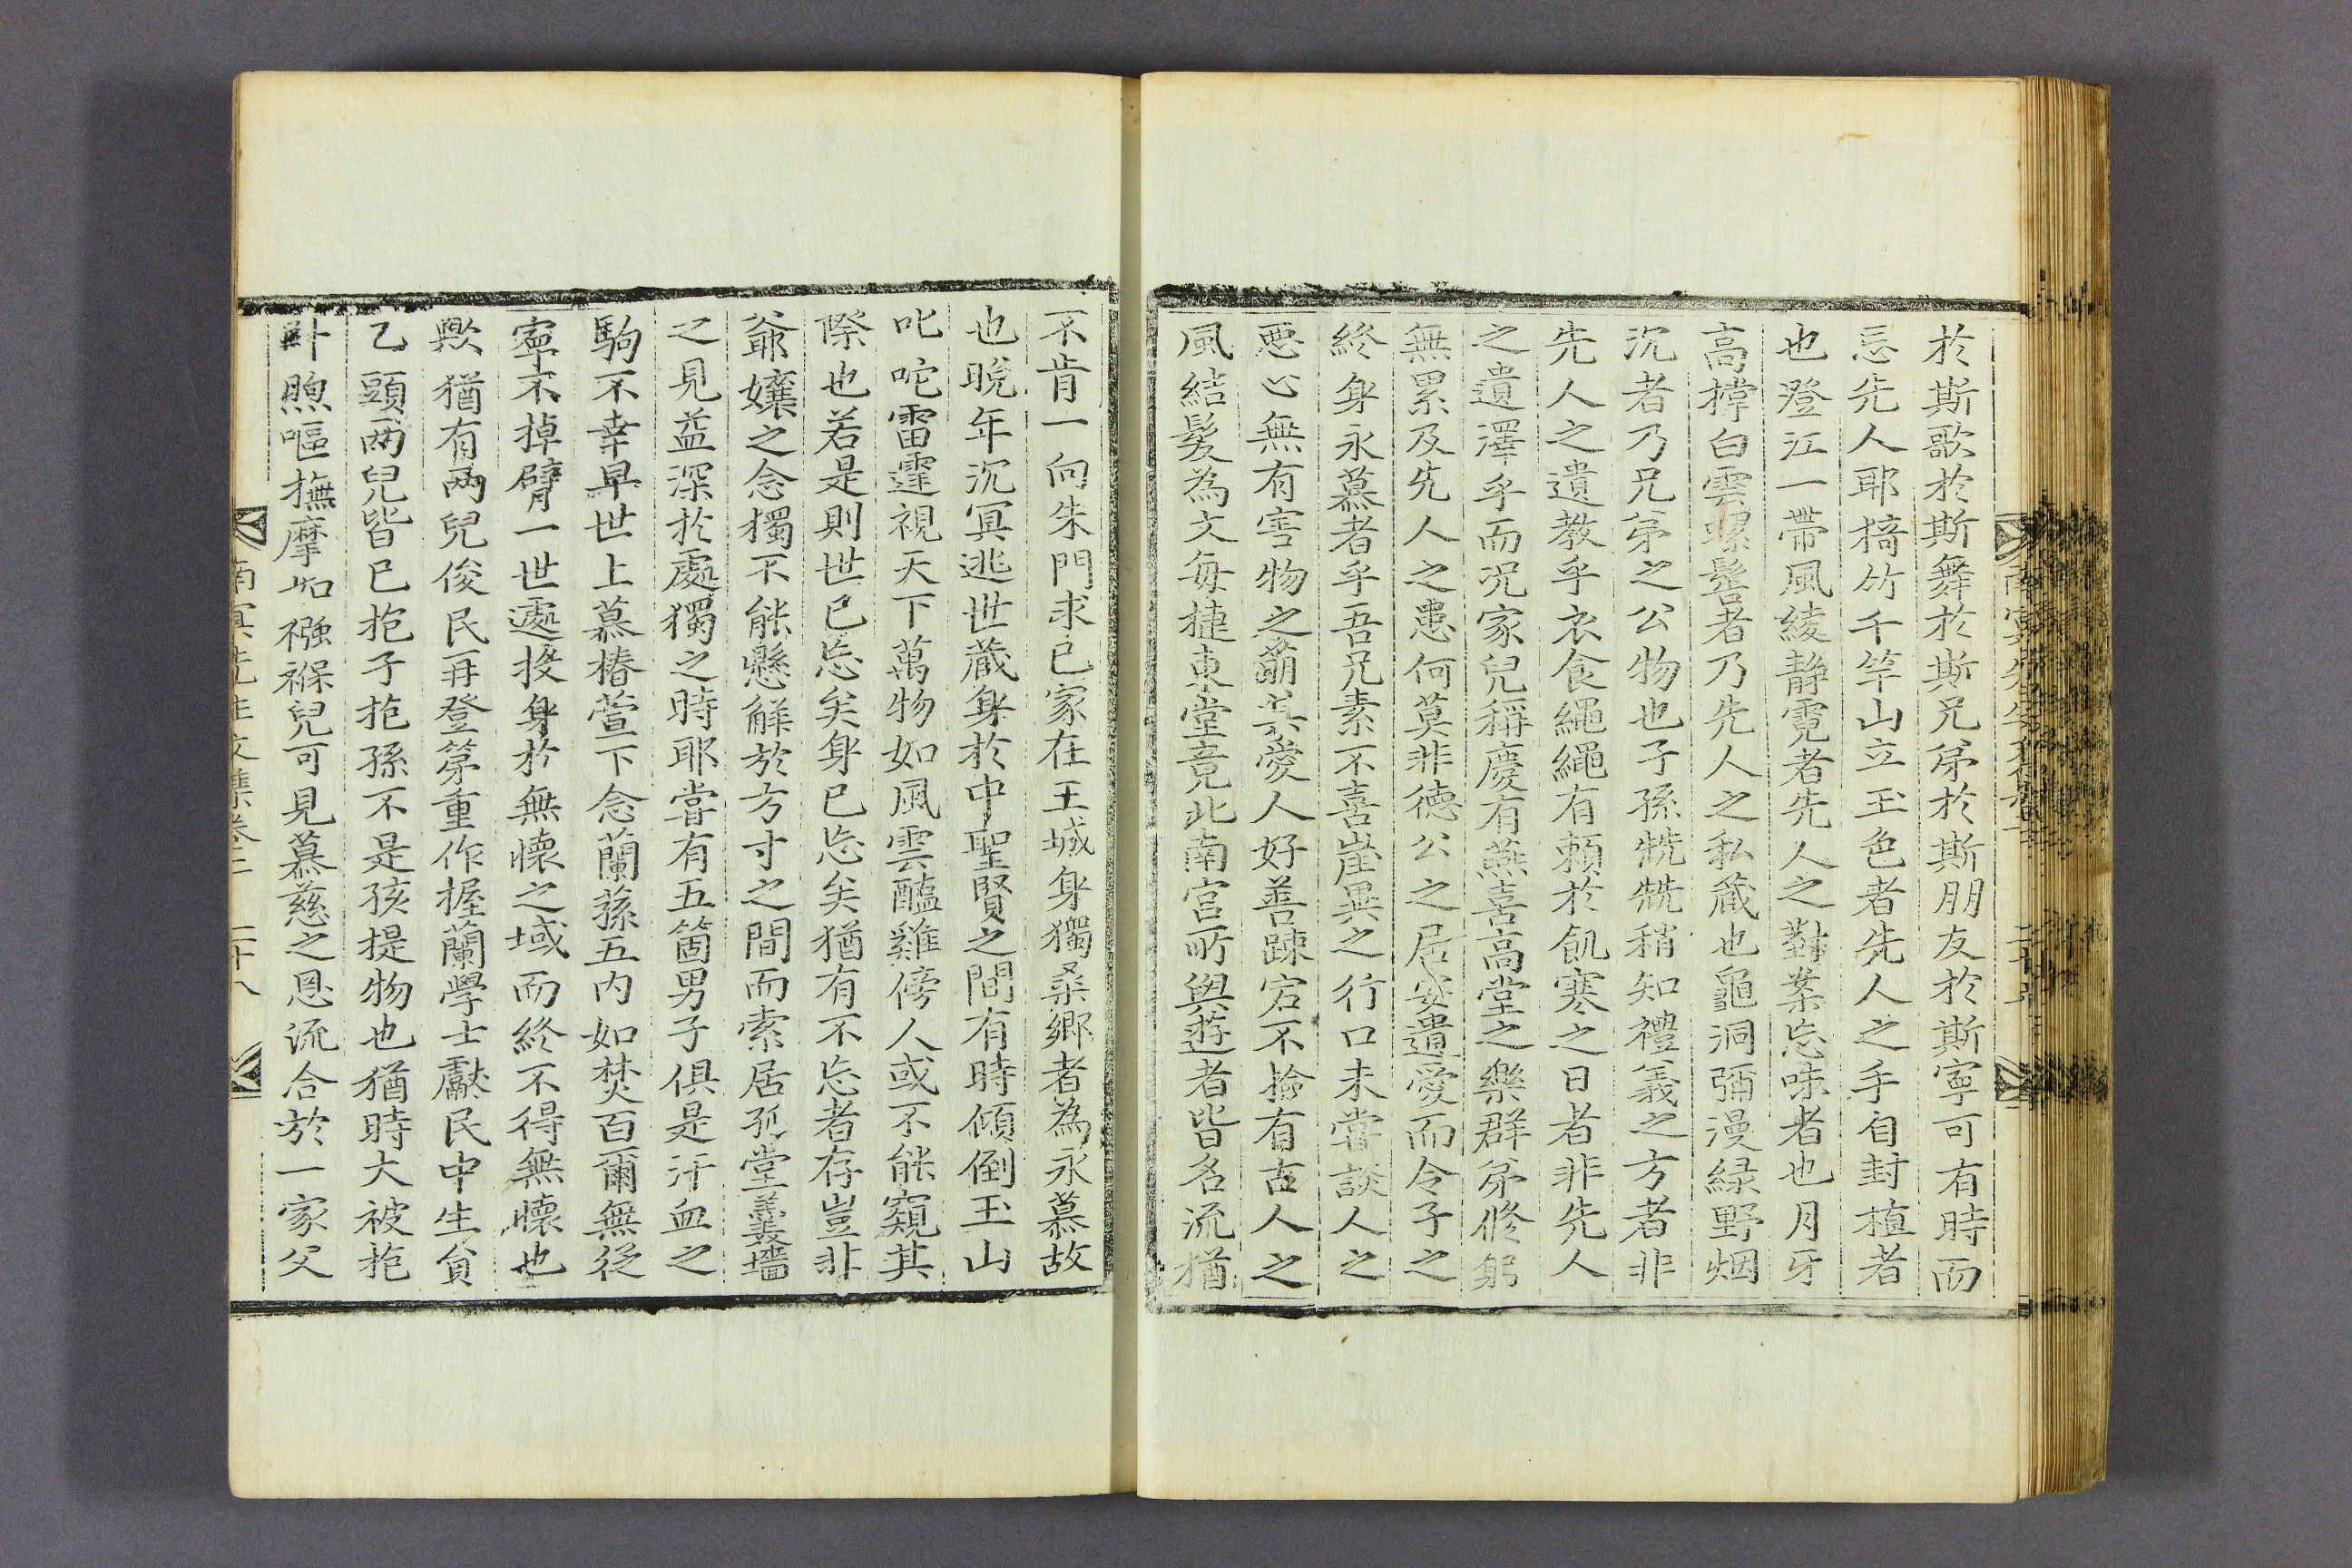 於斯歌於斯舞於斯兄弟於斯朋友於斯寧可有時而
忘先人耶猗竹千竿山立玉色者先人之手自封植者
也澄江一帶風綾靜霓者先人之對案忘味者也月牙
高撑白雲螺髻者乃先人之私藏也龜洞彌漫綠野烟
沉者乃兄弟之公物也子孫兟兟稍知禮義之方者非
先人之遺教乎衣食繩繩有賴於飢寒之日者非先人
之遺澤乎而況家兒稱慶有燕喜高堂之樂群弟修躬
無累及先人之患何莫非德公之居安遺愛而令子之
終身永慕者乎吾兄素不喜崖異之行口未嘗談人之
惡心無有害物之萌其愛人好善踈宕不撿有古人之
風結髮為文每捷東堂竟北南宮所與遊者皆名流猶
不肯一向朱門求已家在王城身獨桑鄉者為永慕故
也晚年沉冥逃世藏身於中聖賢之間有時傾倒玉山
叱咤雷霆視天下萬物如風雲醯雞傍人或不能窺其
際也若是則世已忘矣身已忘矣猶有不忘者存豈非
爺孃之念獨不能懸解於方寸之間而索居孤堂羹墻
之見益深於處獨之時耶嘗有五箇男子俱是汗血之
駒不幸早世上慕椿萱下念蘭蓀五內如焚百爾無從
寧不掉臂一世處投身於無懷之域而終不得無懷也
歟猶有兩兒俊民再登第重作握蘭學士獻民中生貟
乙頭兩兒皆已抱子抱孫不是孩提物也猶時大被抱
卧煦嘔撫摩如襁褓兒可見慕慈之恩流合於一家父
南冥先生文集卷二 二十八